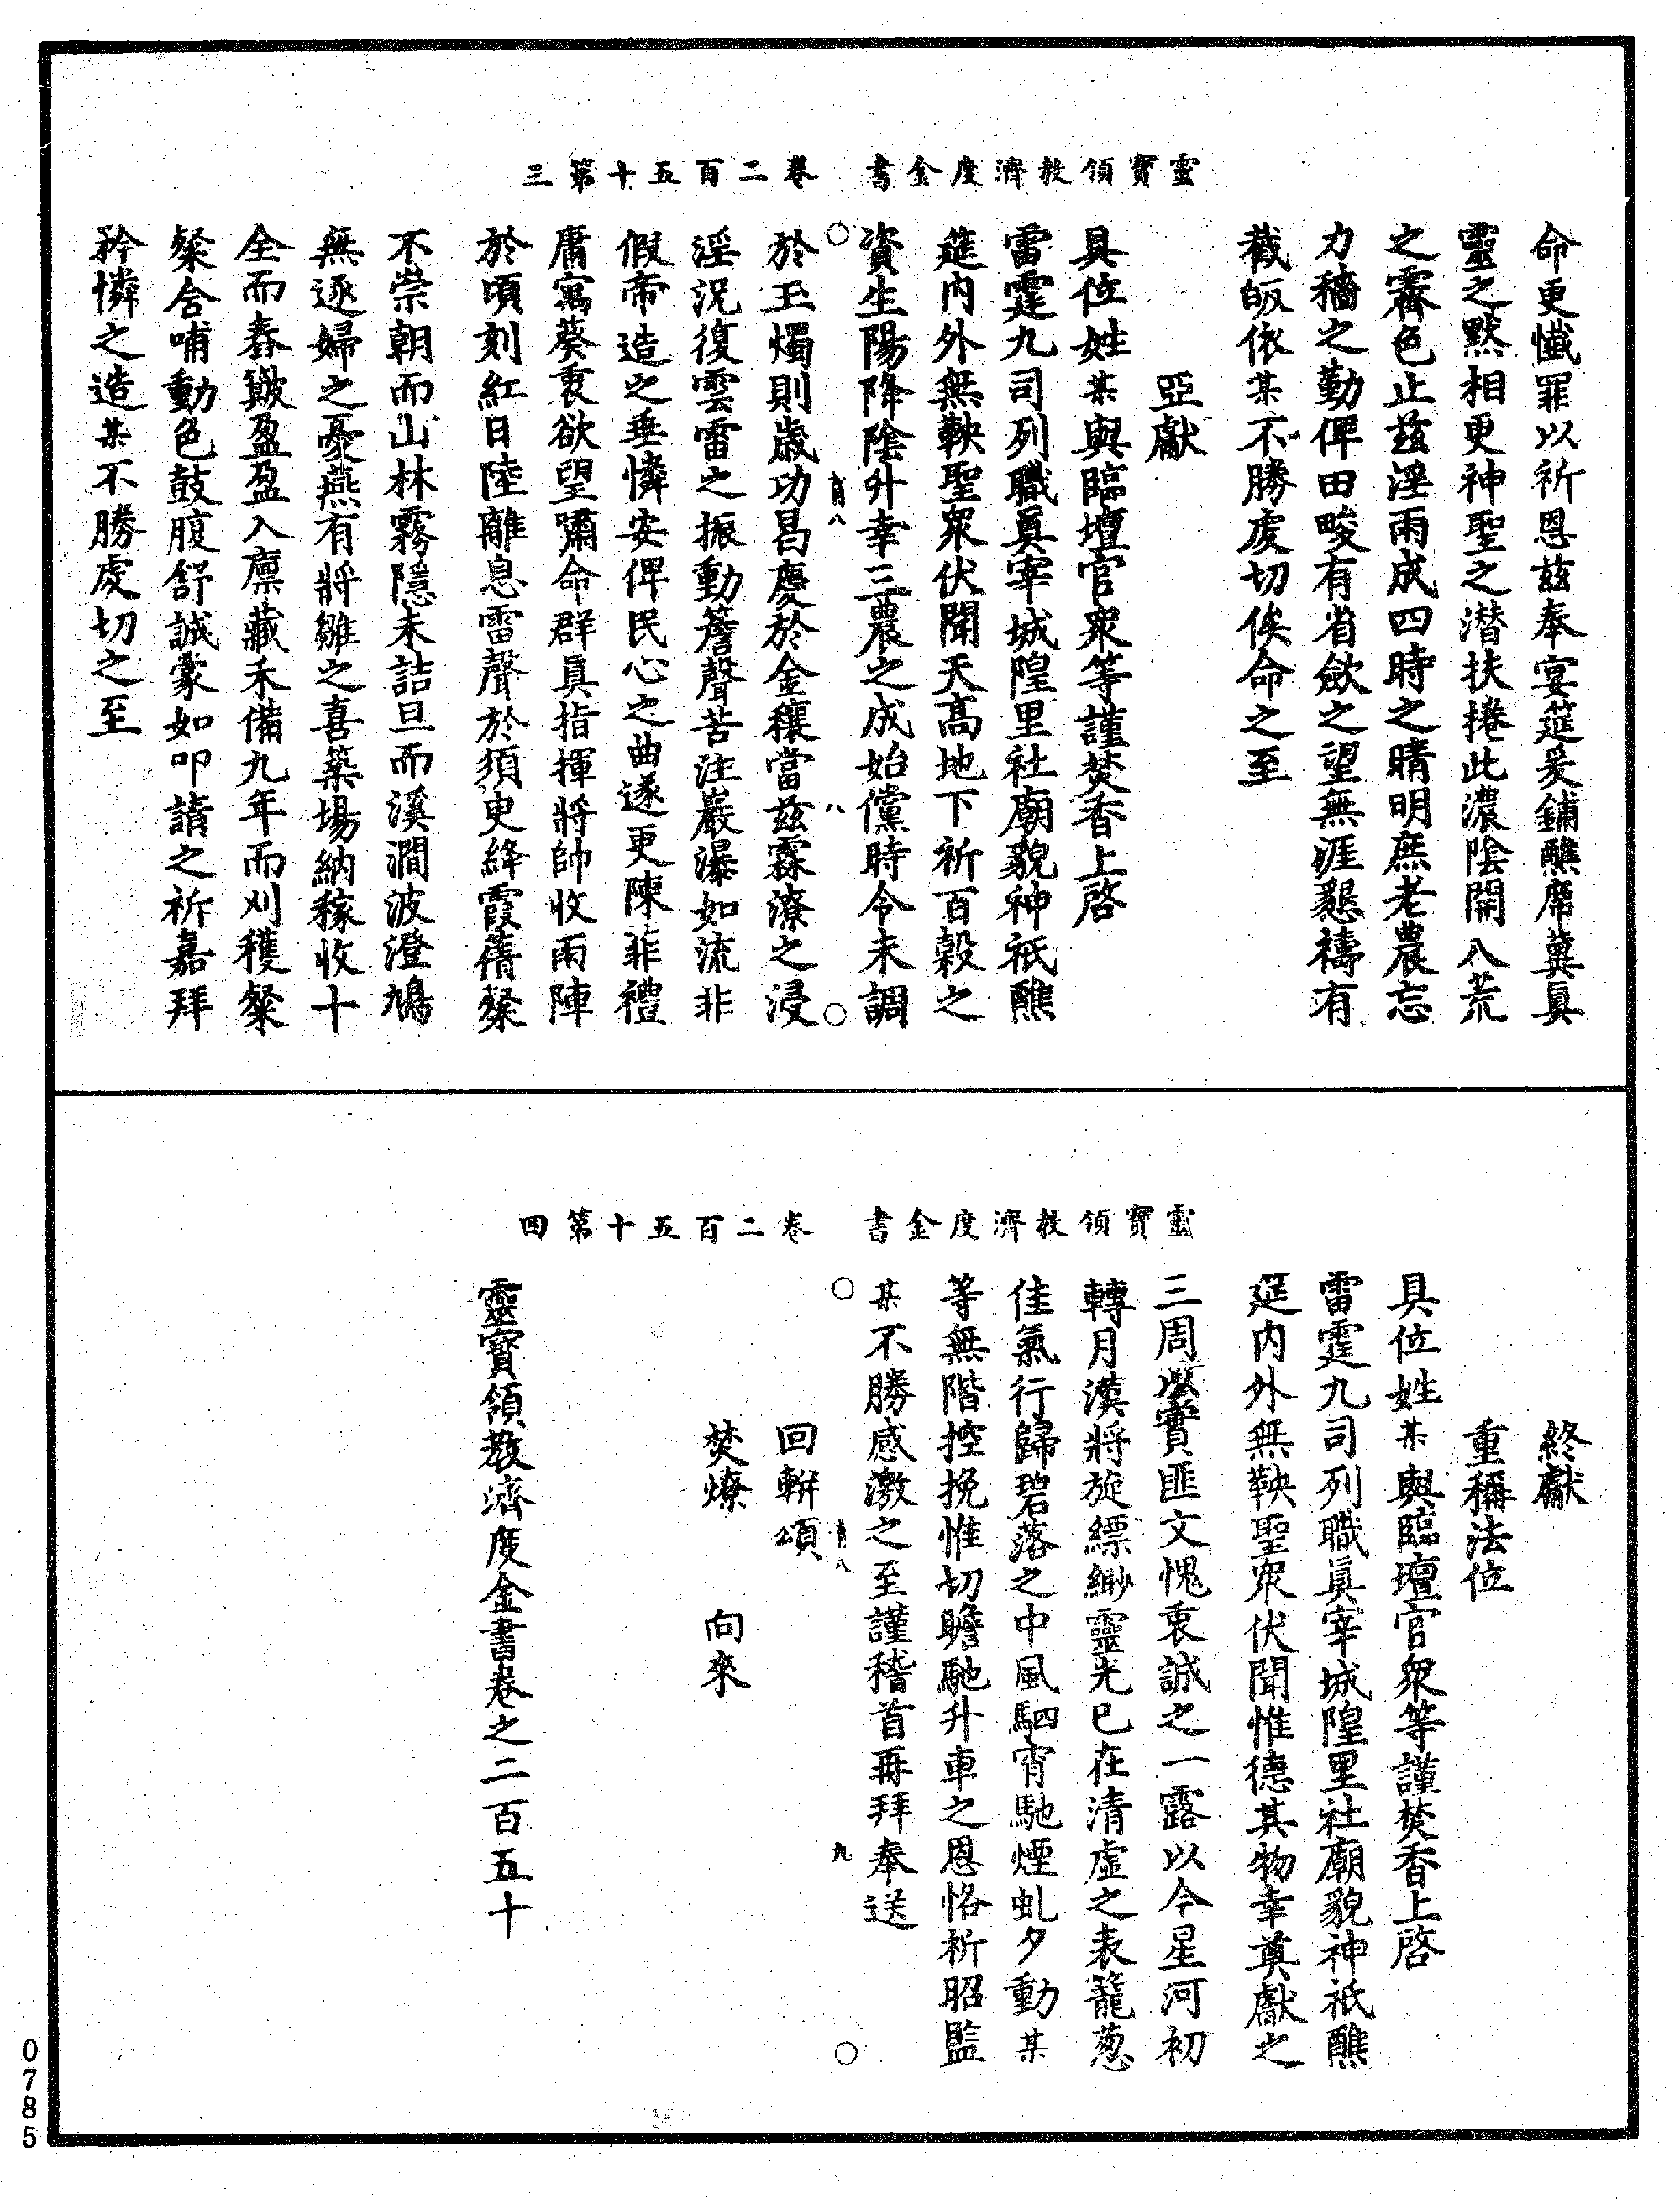 靈寶領教濟度金書　卷二百五十第三
命更懺罪以祈恩茲奉宴筵爰鋪醮席冀眞
靈之默相更神聖之潛扶捲此濃陰開八荒
之霽色止茲淫雨成四時之晴明庶老農忘
力穡之勤俾田畯有省斂之望無涯懇禱有
截皈依某不勝虔切俟命之至
亞獻
具位姓某與臨壇官衆等謹焚香上啓
雷霆九司列職眞宰城隍里社廟貌神祇醮
筵內外無鞅聖衆伏聞天高地下祈百穀之
資生陽降陰升幸三農之成始儻時令未調
於玉燭則歲功昌慶於金穰當茲霖潦之浸
淫況復雲雷之振動簷聲苦注巖瀑如流非
假帝造之垂憐安俾民心之曲遂更陳菲禮
庸寓葵衷欲望嘯命群眞指揮將帥收雨陣
於頃刻紅日陸離息雷聲於須臾絳霞蒨粲
不崇朝而山林霧隱未詰旦而溪澗波澄鳩
無逐婦之憂燕有將雛之喜築場納稼收十
全而舂簸盈盈入廪藏禾備九年而刈穫粲
粲含哺動色鼓腹舒誠蒙如叩請之祈嘉拜
矜憐之造某不勝虔切之至
八
靈寶領教濟度金書　卷二百五十第四
終獻
重稱法位
具位姓某與臨壇官衆等謹焚香上啓
雷霆九司列職眞宰城隍里社廟貌神祇醮
筵內外無鞅聖衆伏聞惟德其物幸奠獻之
三周以實匪文愧衷誠之一露以今星河初
轉月漢將旋縹緲靈光已在清虛之表蘢葱
佳氣行歸碧落之中風駟宵馳煙虬夕動某
等無階控挽惟切瞻馳升車之恩恪祈昭監
某不勝感激之至謹稽首再拜奉送
九
回軿頌
焚燎　向來
靈寶領教濟度金書卷之二百五十
0785